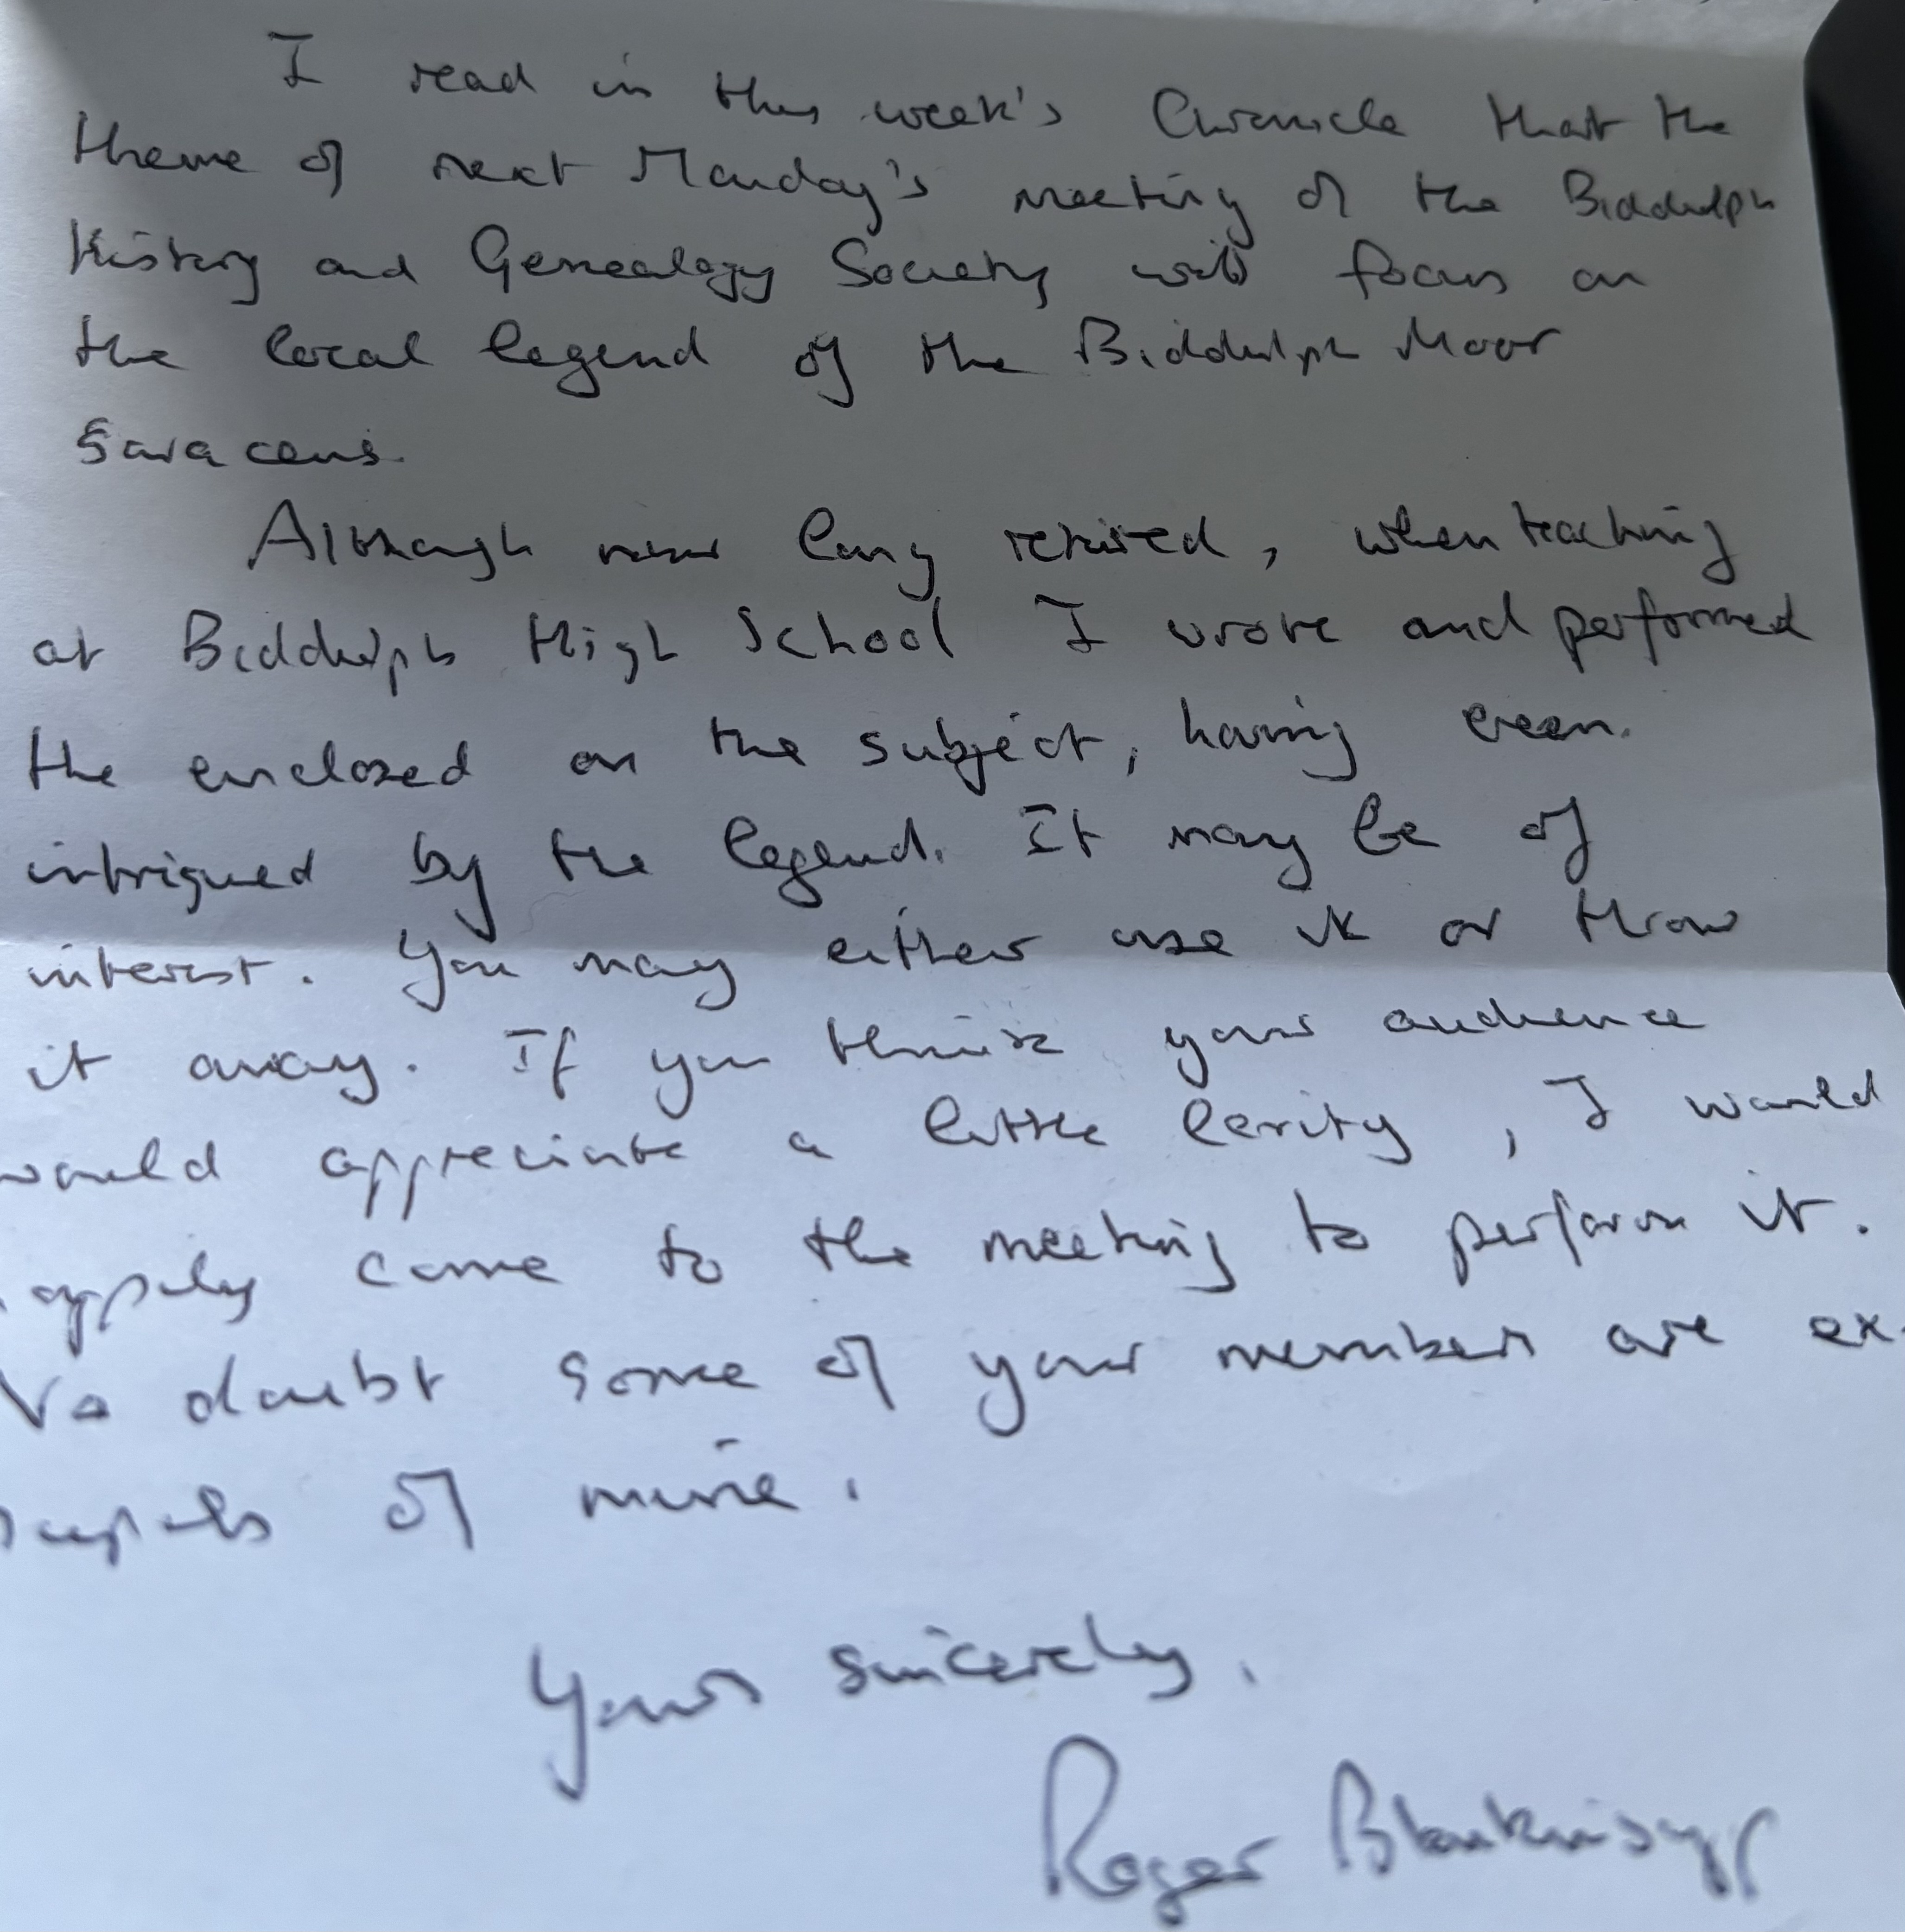 I read in this week's Chronicle that the
theme of next Monday's meeting of the Biddulph
History and Genealogy Society will focus on
the local legend of the Biddulph Moor
Saracens.
Although now long retired, when teaching
at Biddulph High School I wrote and performed
the enclosed on the subject, having been
intrigued by the legend. It may be of
interest. You may either use it or throw
it away. If you think your audience
would appreciate a little levity, I would
happily come to the meeting to perform it.
No doubt some of your members are ex-
pupils of mine.
Yours sincerely,
Roger